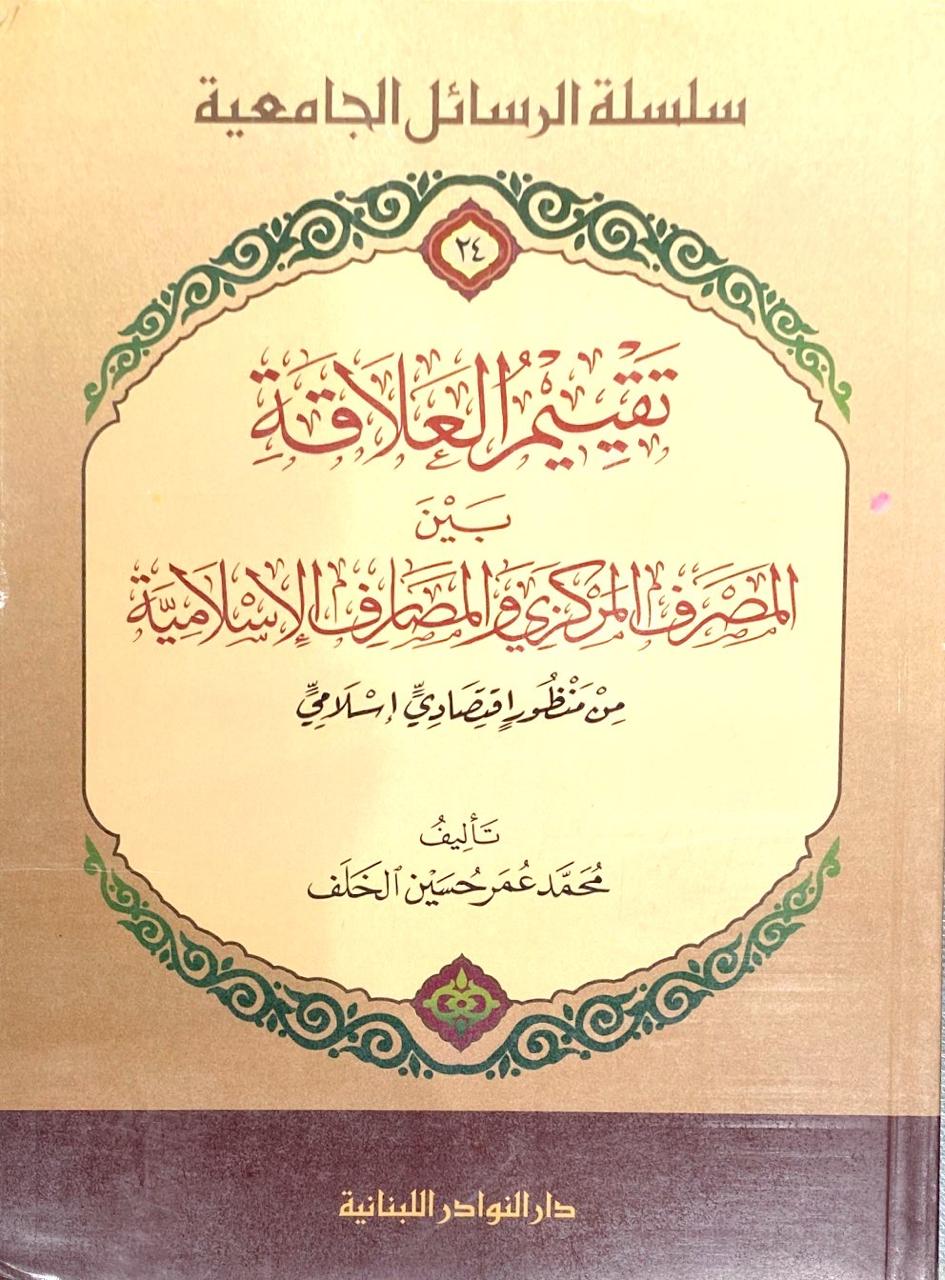 سلسلة الرسائل الجامعية
٢٤
تَقْيِيْمُ العَلَاقَةِ
بَيْنَ
المَصْرَفِ المَرْكَزِيِ وَالمَصَارِفِ الإِسْلَامِيَّةِ
مِنْ مَنْظُورٍ اقْتِصَادِيٍّ إِسْلَامِيٍّ
تَأْلِيفُ
مُحَمَّد عُمَر حُسَيْن الخَلَف
دار النوادر اللبنانية